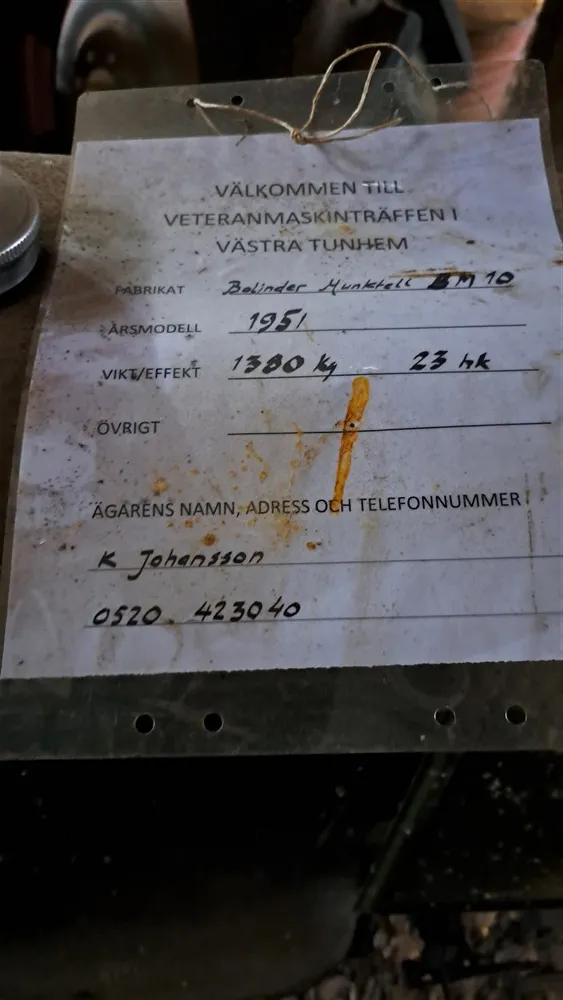 VÄLKOMMEN TILL
VETERANMASKINTRÄFFEN I
VÄSTRA TUNHEM
FABRIKAT Bolinder Munktell BM 10
ÅRSMODELL 1951
VIKT/EFFEKT 1380 kg 23 hk
ÖVRIGT
ÄGARENS NAMN, ADRESS OCH TELEFONNUMMER
K Johansson
0520. 423040